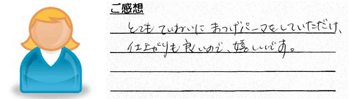 ご感想
とてもていねいにまつげパーマをしていただけ、
仕上がりも良いので、嬉しいです。